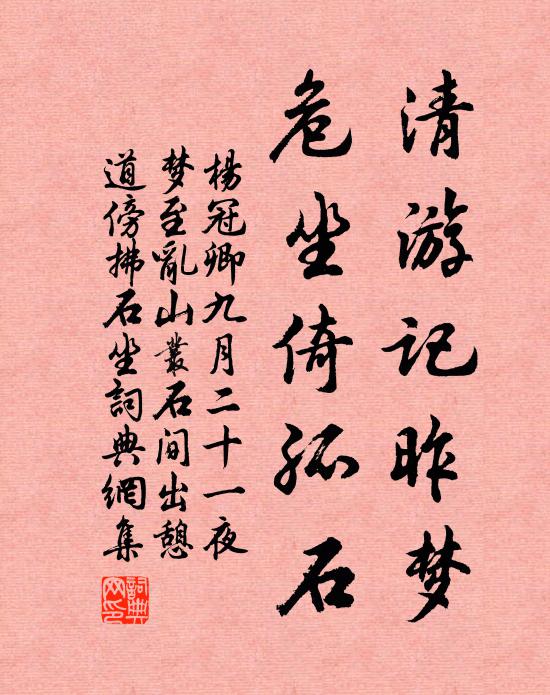 清游记昨梦
危坐倚孤石
楊冠卿九月二十一夜
梦至亂山叢石间出憩
道傍拂石坐詞典網集
詞典网印